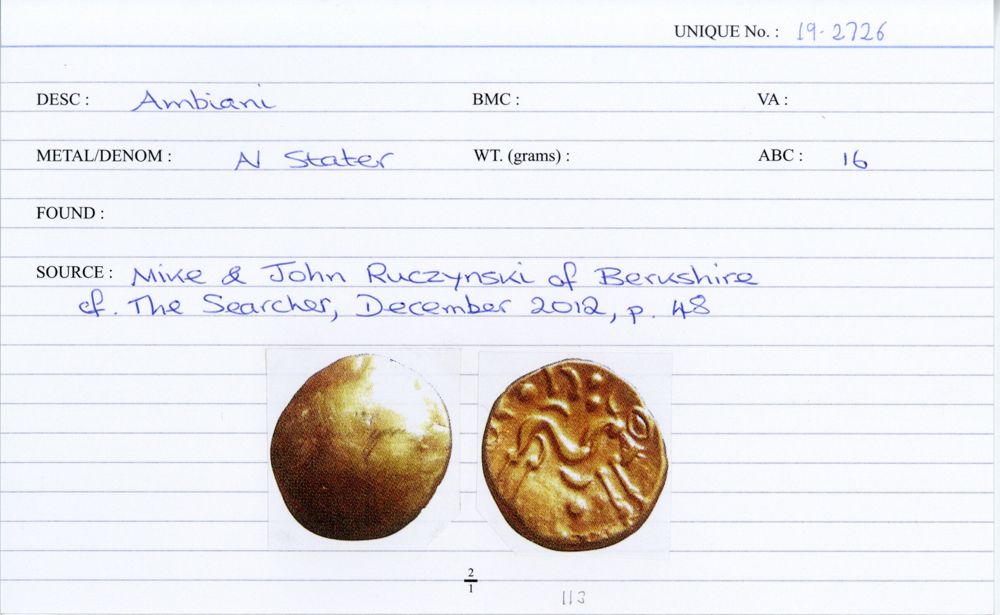 UNIQUE No. : 19-2726
DESC : Ambiani BMC : VA :
METAL/DENOM : AV Stater WT. (grams) : ABC : 16
FOUND :
SOURCE : Mike & John Ruczynski of Berkshire
cf. The Searcher, December 2012, p. 48
2
1
113